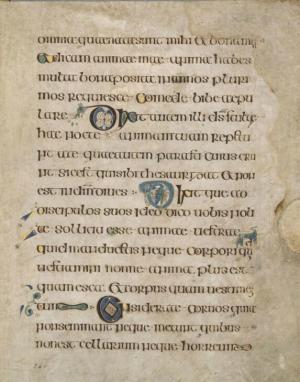 omnia quae nata sunt mihi & bona mea
& dicam animae meae anima habes
multa bona possita in annos pluri
mos requiesce comede bibe aepu
lare Dixit autem illi ds stulte
hac nocte animam tuam repetu
nt a te quae autem parasti cuius eru
nt sic est qui sibi thesaurizat & non
est in dives Dixit que ad
discipulos suos ideo dico uobis noli
te solliciti esse animae uestrae
quid manducetis neque corpori qu
uestiamini nonne anima plus est
quam esca & corpus quam uestime
tum Considerate coruos quia
non seminant neque metunt quibus
non est cellarium neque horreum